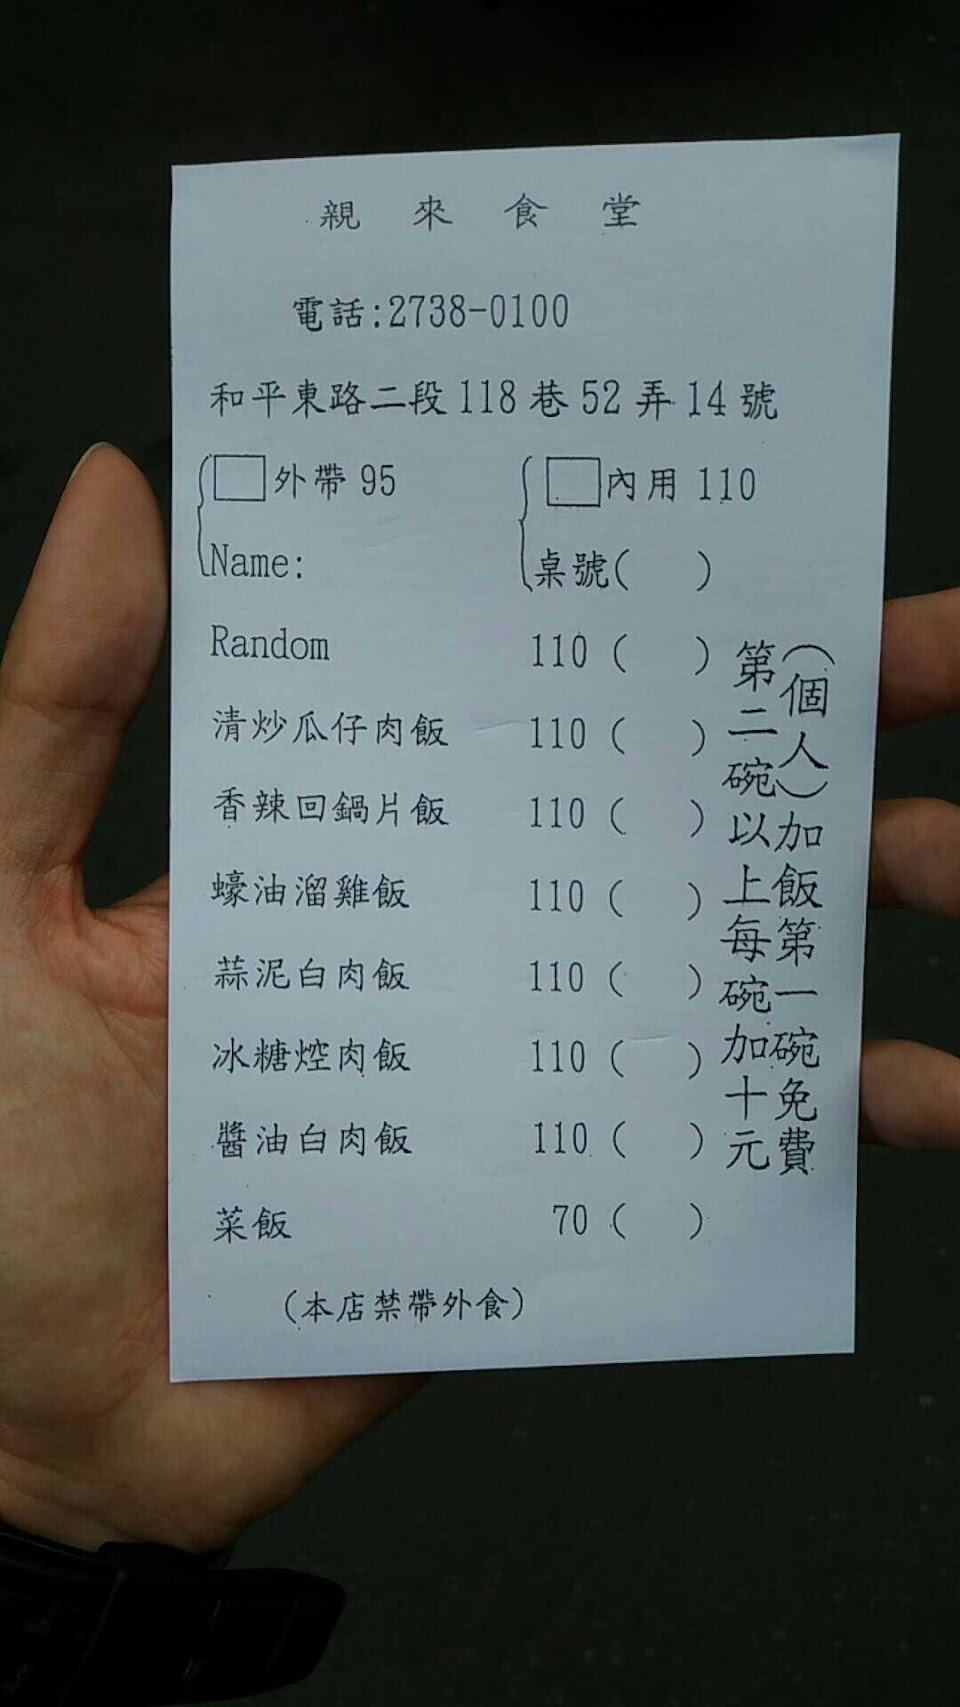 親來食堂
電話:2738-0100
和平東路二段118巷52弄14號
外帶 95
Name:
內用 110
桌號( )
Random 110 ( )
清炒瓜仔肉飯 110 ( )
香辣回鍋片飯 110 ( )
蠔油溜雞飯 110 ( )
蒜泥白肉飯 110 ( )
冰糖焢肉飯 110 ( )
醬油白肉飯 110 ( )
菜飯 70 ( )
(個人)加飯第一碗免費
第二碗以上每碗加十元
(本店禁帶外食)